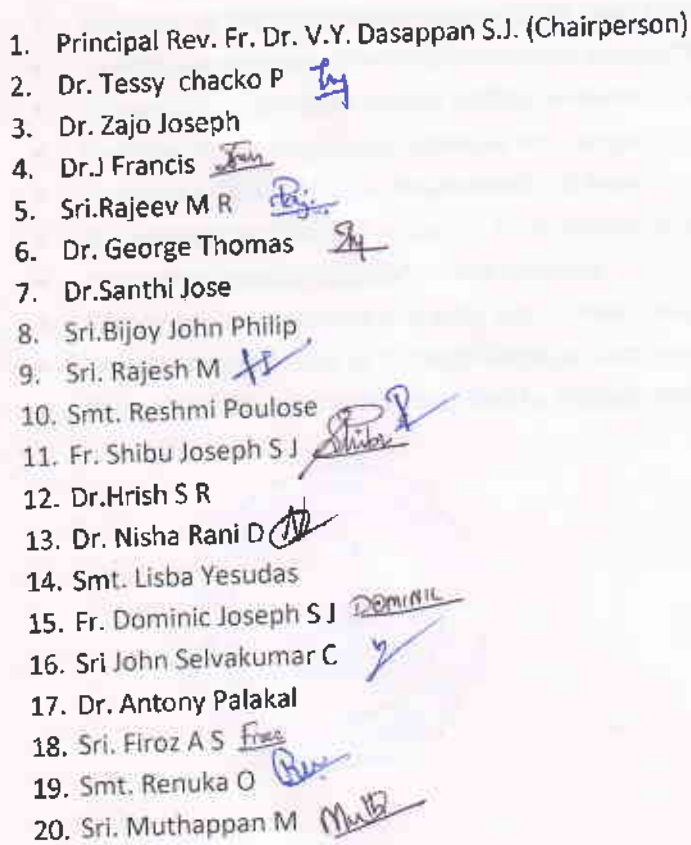 1. Principal Rev. Fr. Dr. V.Y. Dasappan S.J. (Chairperson)
2. Dr. Tessy chacko P
3. Dr. Zajo Joseph
4. Dr.J Francis
5. Sri.Rajeev M R
6. Dr. George Thomas
7. Dr.Santhi Jose
8. Sri.Bijoy John Philip
9. Sri. Rajesh M
10. Smt. Reshmi Poulose
11. Fr. Shibu Joseph S J Shibu
12. Dr.Hrish S R
13. Dr. Nisha Rani D
14. Smt. Lisba Yesudas
15. Fr. Dominic Joseph S J DOMINIC
16. Sri John Selvakumar C
17. Dr. Antony Palakal
18. Sri. Firoz A S
19. Smt. Renuka O
20. Sri. Muthappan M